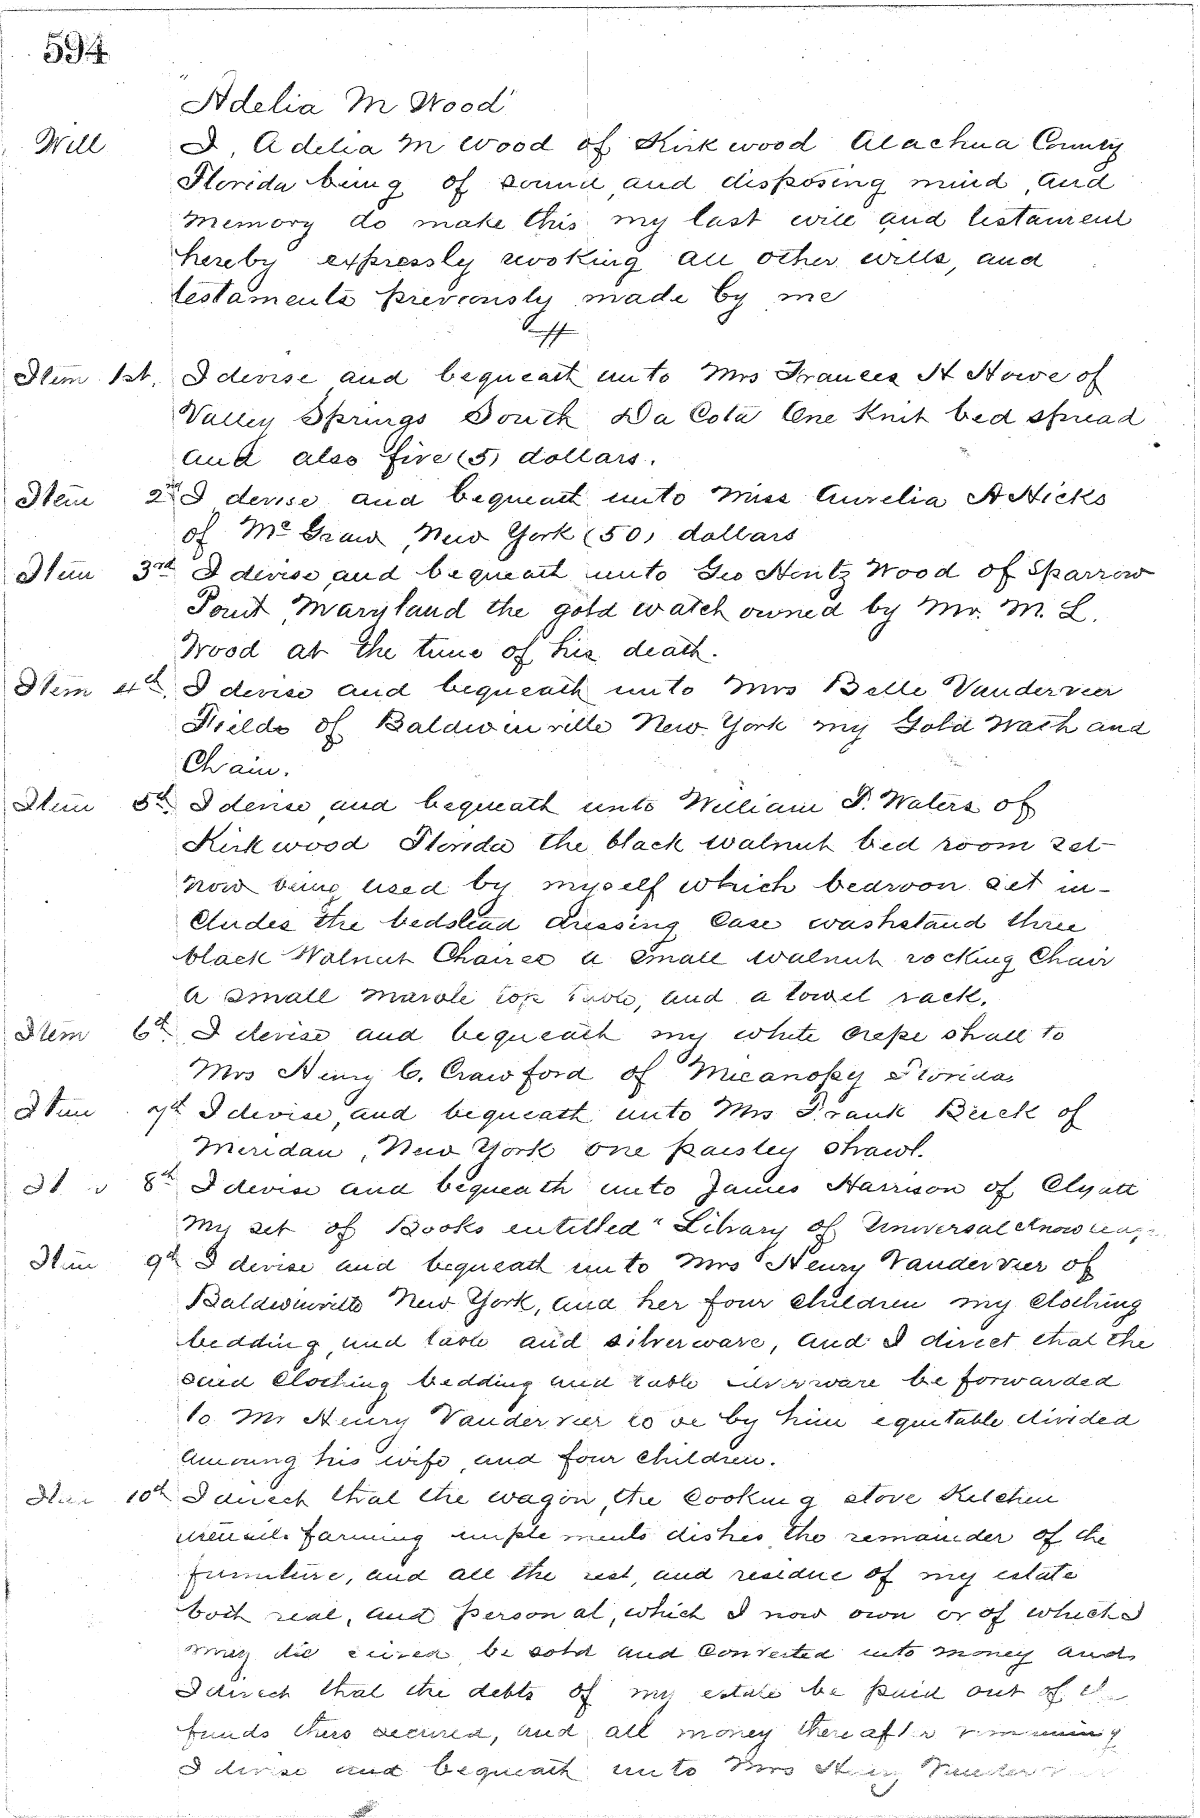 594
"Adelia M Wood"
Will I, Adelia M Wood of Kirkwood Alachua County
Florida being of sound, and disposing mind, and
memory do make this my last will and testament
hereby expressly revoking all other wills, and
testaments previously made by me
Item 1st. I devise and bequeath unto Mrs Frances H Howe of
Valley Springs South Da Cota One Knit bed spread
and also five (5) dollars.
Item 2nd I devise and bequeath unto Miss Aurelia A Hicks
of McGraw, New York (50) dollars
Item 3rd I devise, and bequeath unto Geo Hentz Wood of Sparrow
Point, Maryland the gold watch owned by Mr. M. L.
Wood at the time of his death.
Item 4th. I devise and bequeath unto Mrs Belle Vanderveer
Fields of Baldwinville New York my Gold Wath and
Chain.
Item 5th. I devise, and bequeath unto William F. Waters of
Kirkwood Florida the black walnut bed room set
now being used by myself which bedroon set in-
cludes the bedstead dressing Case washstand three
black Walnut Chaires a small walnut rocking Chair
a small marble top table, and a towel rack.
Item 6th I devise and bequeath my white crepe shall to
Mrs Henry C. Crawford of Micanopy Florida
Item 7th I devise, and bequeath unto Mrs Frank Buck of
Meridan, New York one paisley shawl.
8th I devise and bequeath unto James Harrison of Clyatt
my set of Books entitled "Library of Universal Knowledge
Item 9th I devise and bequeath unto Mrs Henry Vanderveer of
Baldwinville New York, and her four children my clothing
bedding, and table and silverware, and I direct that the
said clothing bedding and table silverware be forwarded
to Mr Henry Vanderveer to be by him equitable divided
amoung his wife, and four children.
Item 10th I direct that the wagon, the cooking stove Kitchen
utensils farming implements dishes, the remainder of the
furniture, and all the rest, and residue of my estate
both real, and personal, which I now own or of which I
may die seized, be sold and converted into money and
I direct that the debts of my estate be paid out of the
funds thus secured, and all money thereafter remaining
I devise and bequeath unto Mrs Henry Vanderveer